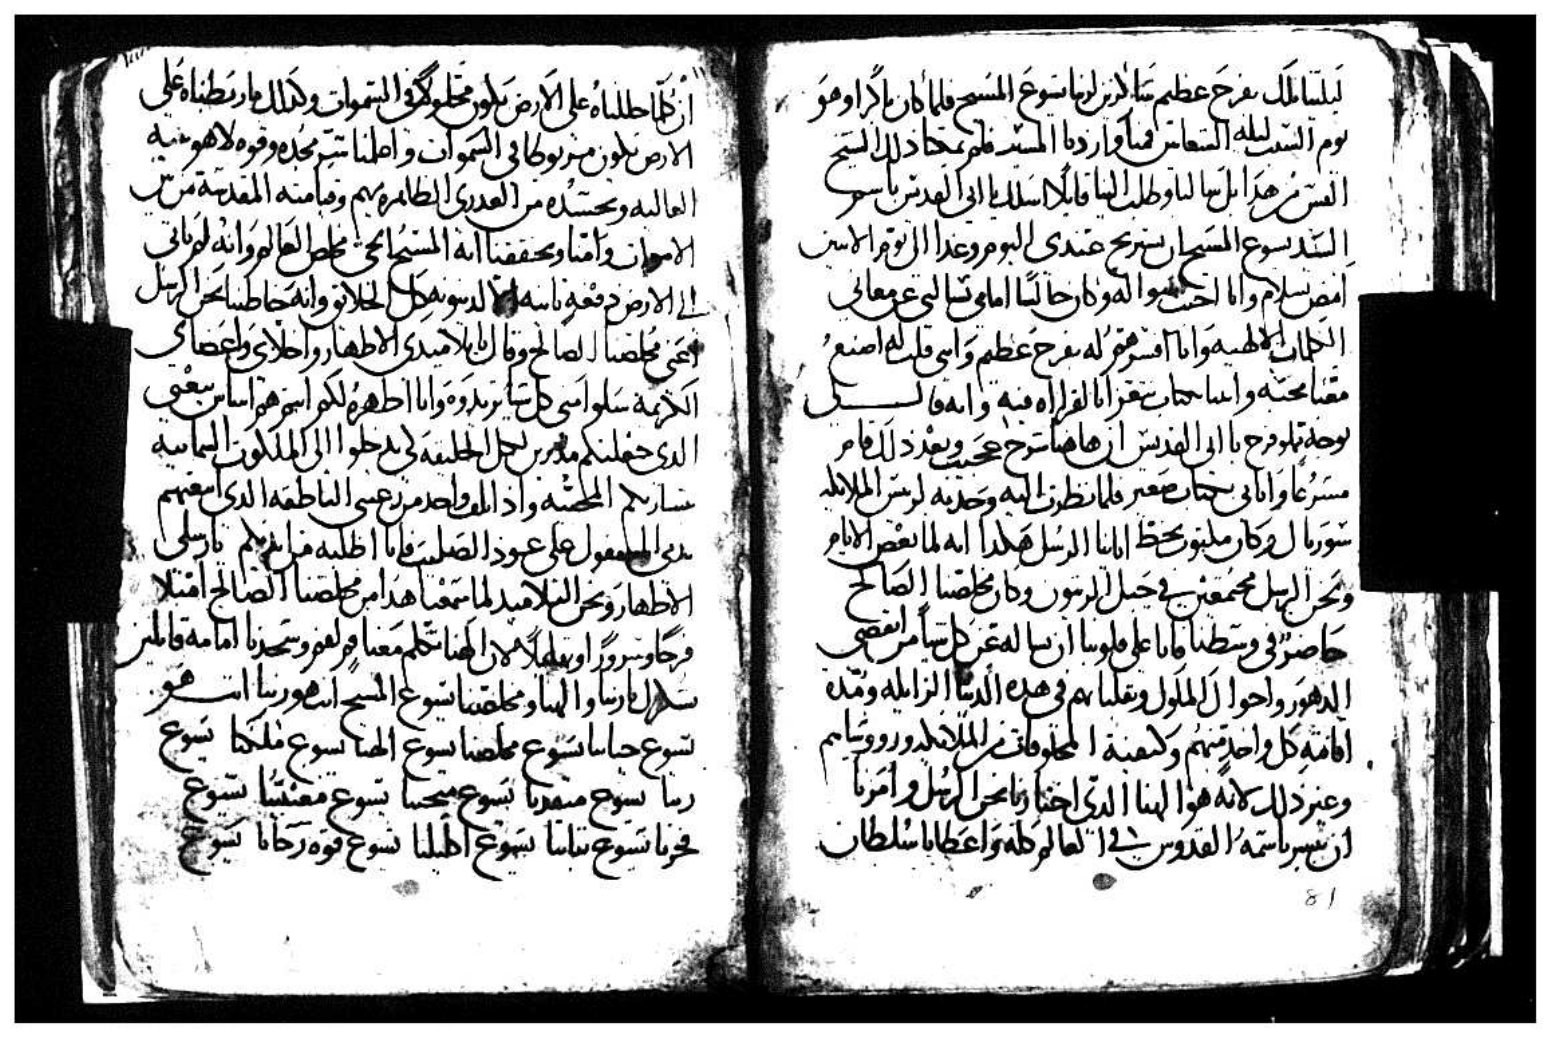 ليلتنا تلك بفرح عظيم شاكرين لربنا يسوع المسيح فلما كان باكرا وهو
يوم السبت ليله قمنا واردنا المسير فلم يمكنا ذلك الشيخ
القس من هذا بل سالنا وطلب الينا قايلا اسلك يا ابي القديس باسم
السيد يسوع المسيح ان تستريح عندي اليوم وغدا الى يوم الاثنين
امض بسلام وانا اجبت سواله وكان جالسا امامي تسالني عن معاني
الكلمات الالهيه وانا افسرهم له بفرح عظيم واني قلت له اصنع
معنا محبه واتينا بكتاب نقرا فيه وانه قال
بوجه مملو فرح يا ابي القديس ان هاهنا شرح عجيب وبعد ذلك قام
مسرعا واتاني بكتاب صغير فلما نظرت اليه وجدته لريس الملايكه
سوريال وكان مكتوب بخط ابائنا الرسل هكذا انه لما بعض الايام
ونحن الرسل مجتمعين في جبل الزيتون وكان مخلصنا الصالح
حاضر في وسطنا فاتا على قلوبنا ان نساله عن كل شيا من انقضى
الدهور واحوال الملوك وتقلباتهم في هذه الدنيا الزايله ومدة
اقامة كل واحد منهم وكيفية المخلوقات من الملايكه وروسايهم
وغير ذلك لانه هو الهنا الذي اختارنا نحن الرسل وامرنا
ان نبشر باسمه القدوس في العالم كله واعطانا سلطان
81
ان كلما حللناه على الارض يكون محلولا في السموات وكذلك ما ربطناه على
الارض يكون مربوطا في السموات واعلمنا سر مجده وقوه لاهوتيه
العاليه وتجسده من العدرى الطاهره مريم وقيامته المقدسة من بين
الاموات وامنا وتحققنا انه المسيح بحق مخلص العالم وانه لم ياتي
الى الارض دفعه ثانيه الا لدينونة كل الخلايق وانه خاطبنا نحن الرسل
اعني مخلصنا الصالح وقال يا تلاميدي الاطهار واخلاي واعضاي
الكريمه سلوا مني كل شيا تريدوه وانا اظهره لكم انتم هم اساس بيعتي
الدي جعلتكم مدبرين لكل الخليقه لكي يدخلوا الى الملكوت السماييه
بشارتكم المحييه واذا تلف واحد من رعيتي الناطقه الدي ابتعتهم
بدمي المسفوك على عود الصليب فانا اطلبه من ايديكم يا رسلي
الاطهار ونحن التلاميد لما سمعنا هدا من مخلصنا الصالح امتلانا
فرحا وسرورا وتهليلا لان الهنا تكلم معنا وسجدنا امامه قايلين
نسالك يا ربنا والهنا ومخلصنا يسوع المسيح انت هو ربنا انت هو
يسوع حياتنا يسوع مخلصنا يسوع الهنا يسوع ملكنا يسوع
ربنا يسوع منقدنا يسوع محيينا يسوع معيننا يسوع
فخرنا يسوع ثباتنا يسوع اكليلنا يسوع قوه رجانا يسوع